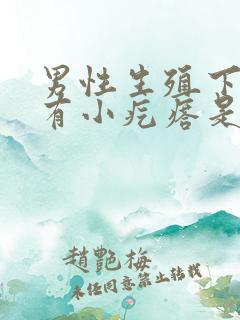 男性生殖下
有小疙瘩是
趙艷梅
未经同意禁止转载